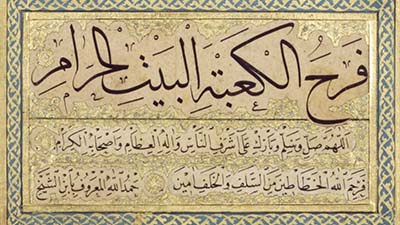 فرح الكعبة البيت الحرام
اللهم صل وسلم وبارك على اشرف الناس واله العظام واصحابه الكرام
فرحم الله الخطاطين من السلف والخلف امين حمد الله المعروف بابن الشيخ